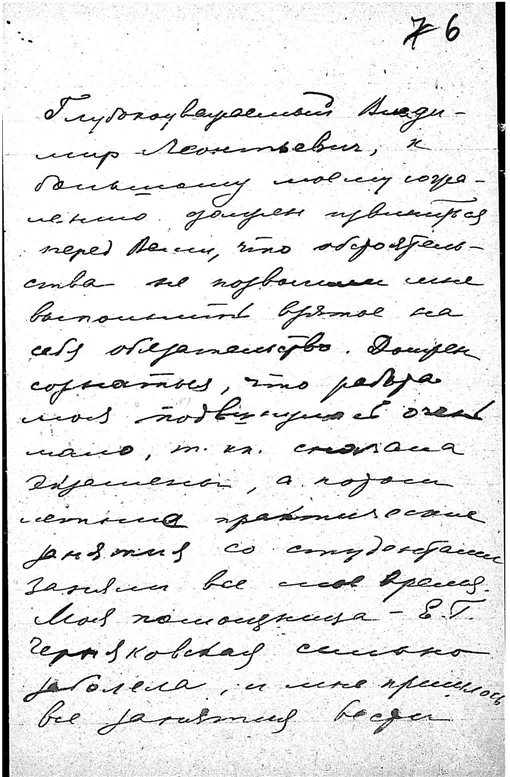 76
Глубокоуважаемый Влади-
мир Леонтьевич, к
большому моему сожа-
лению должен извиниться
перед Вами, что обстоятель-
ства не позволили мне
выполнить взятое на
себя обязательство. Должен
сознаться, что работа
моя подвинулась очень
мало, т. к. сначала
экзамены, а потом
летние практические
занятия со студентами
заняли все мое время.
Моя помощница – Е.Г.
Черняковская сильно
заболела, и мне пришлось
все занятия вести